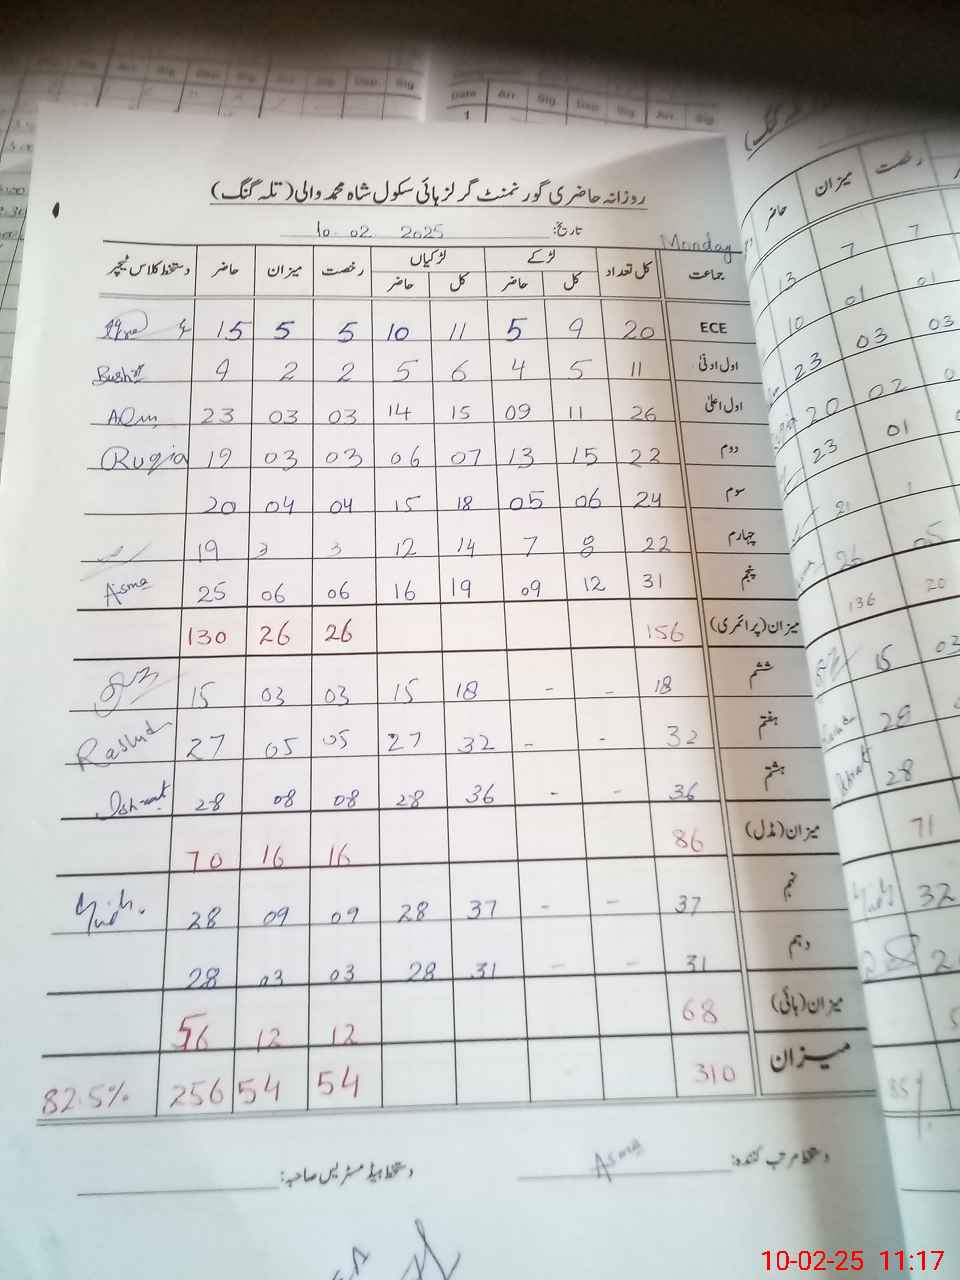 Date Arr. Sig. Dep. Sig. Arr. Sig.
1
روزانہ حاضری گورنمنٹ گرلز ہائی سکول شاہ محمد والی (تلہ گنگ)
تاریخ: 10-02-2025 Monday
جماعت کل تعداد لڑکے لڑکیاں رخصت میزان حاضر دستخط کلاس ٹیچر
کل حاضر کل حاضر
ECE 20 9 5 11 10 5 5 15
اول ادنیٰ 11 5 4 6 5 2 2 9 Bushra
اول اعلیٰ 26 11 09 15 14 03 03 23
دوم 22 15 13 07 06 03 03 19 Ruqia
سوم 24 06 05 18 15 04 04 20
چہارم 22 8 7 14 12 3 3 19
پنجم 31 12 09 19 16 06 06 25 Asma
میزان (پرائمری) 156 26 26 130
ششم 18 - - 18 15 03 03 15
ہفتم 32 - - 32 27 05 05 27 Rashid
ہشتم 36 - - 36 28 08 08 28 Ishrat
میزان (مڈل) 86 16 16 70
نہم 37 - - 37 28 09 09 28
دہم 31 - - 31 28 03 03 28
میزان (ہائی) 68 12 12 56
میزان 310 54 54 256 82.5%
دستخط مرتب کنندہ: Asma
دستخط ہیڈ مسٹریس صاحبہ:
رخصت میزان حاضر
7 7 13
01 01 10
03 03 23
02 20
01 23
21
05 26
20 136
03 15
28
28
71
32
85%
10-02-25 11:17